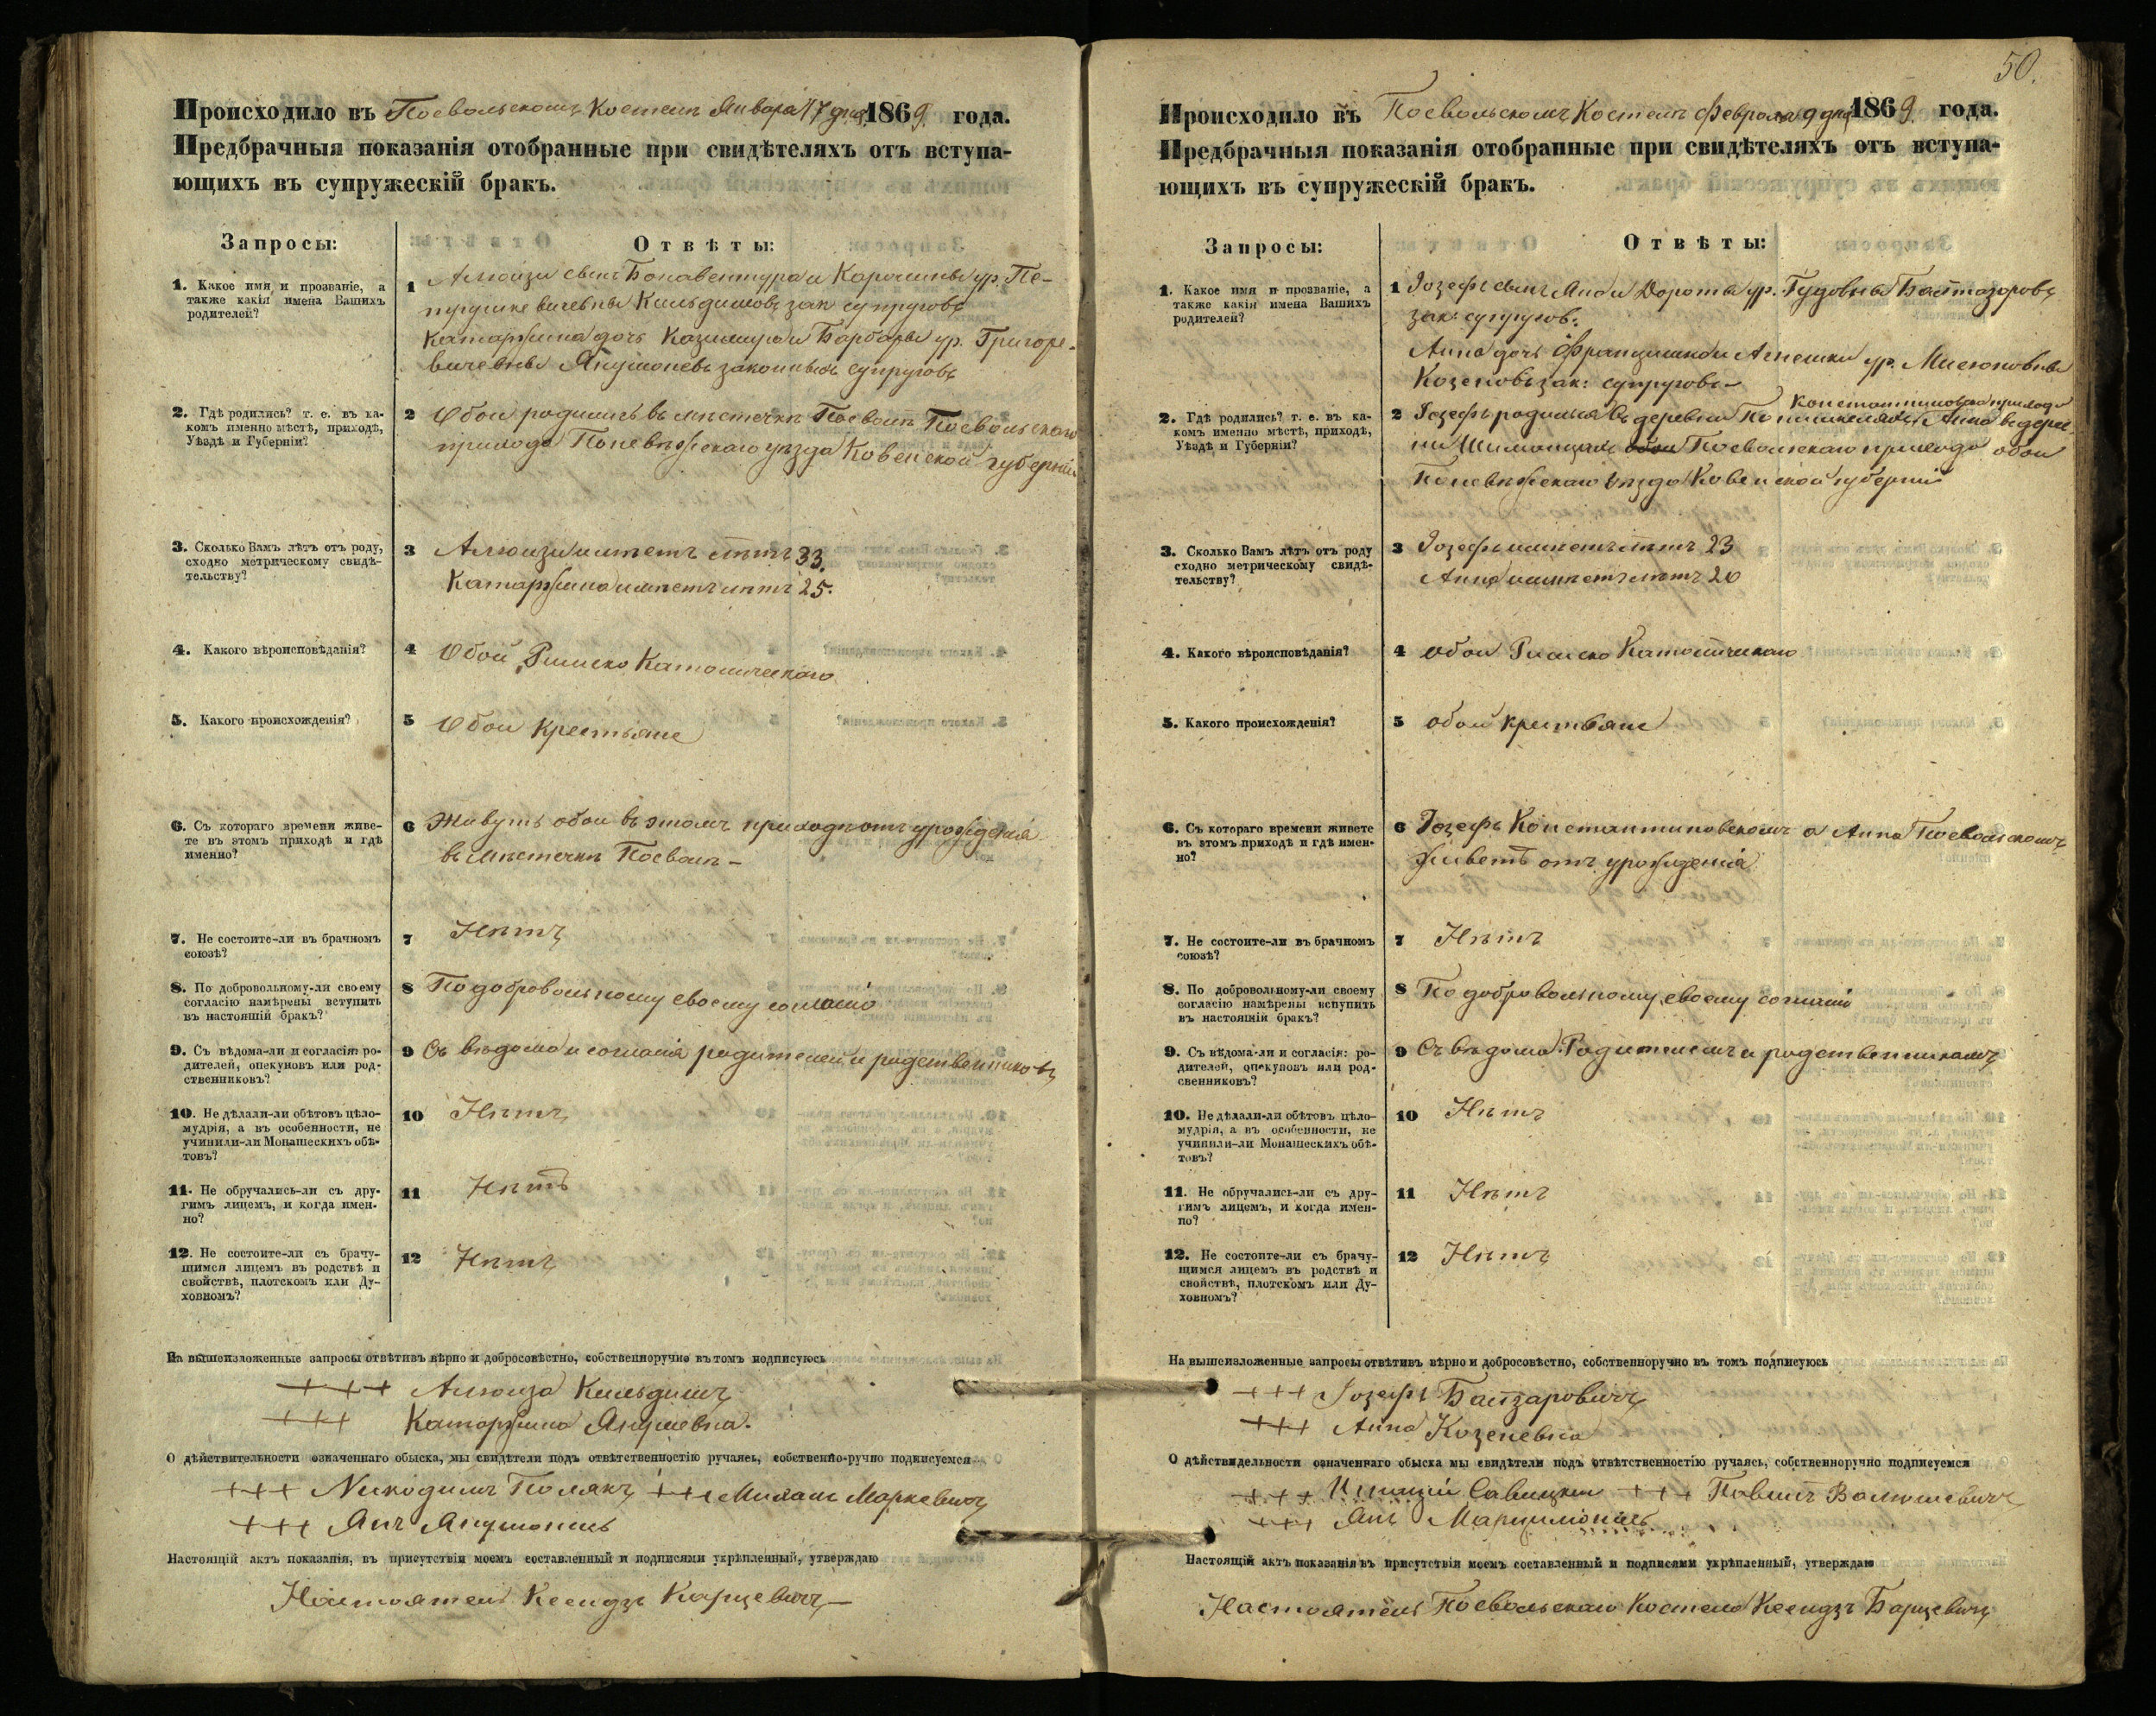 Происходило въ Поевольскомъ Костелѣ Января 17 дня 1869 года.
Предбрачныя показанія отобранные при свидѣтеляхъ отъ вступа-
ющихъ въ супружескій бракъ.
Запросы:
Отвѣты:
1. Какое имя и прозваніе, а
также какія имена Вашихъ
родителей?
1 Алюизи сынъ Бонавентура и Каролины ур. Пе-
трушкевичевны Кильдишовъ зак супруговъ
Катаржина дочь Казимира и Барбары ур. Григоре-
вичевны Янушонѣвъ законныхъ супруговъ
2. Гдѣ родились? т. е. въ ка-
комъ именно мѣстѣ, приходѣ,
Уѣздѣ и Губерніи?
2 Обои родились въ мѣстечкѣ Поеволѣ Поевольскаго
прихода Поневѣжскаго уѣзда Ковенской губерніи
3. Сколько Вамъ лѣтъ отъ роду,
сходно метрическому свидѣ-
тельству?
3 Алюизи имѣетъ лѣтъ 33.
Катаржина имѣетъ лѣтъ 25.
4. Какого вѣроисповѣданія?
4 Обои Римско Католическаго
5. Какого происхожденія?
5 Обои Крестьяне
6. Съ котораго времени живе-
те въ этомъ приходѣ и гдѣ
именно?
6 Живутъ обои въ этомъ приходѣ отъ урожденія
въ Мѣстечкѣ Поеволѣ –
7. Не состоите-ли въ брачномъ
союзѣ?
7 Нѣтъ
8. По добровольному-ли своему
согласію намѣрены вступить
въ настоящій бракъ?
8 По добровольному своему согласію
9. Съ вѣдома-ли и согласія: ро-
дителей, опекуновъ или род-
ственниковъ?
9 Съ вѣдома и согласія родителей и родственниковъ
10. Не дѣлали-ли обѣтовъ цѣло-
мудрія, а въ особенности, не
учинили-ли Монашескихъ обѣ-
товъ?
10 Нѣтъ
11. Не обручались-ли съ дру-
гимъ лицемъ, и когда имен-
но?
11 Нѣтъ
12. Не состоите-ли съ брачу-
щимся лицемъ въ родствѣ и
свойствѣ, плотскомъ или Ду-
ховномъ?
12 Нѣтъ
На вышеизложенные запросы отвѣтивъ вѣрно и добросовѣстно, собственноручно въ томъ подписуюсь
+++ Алюиза Кильдишъ
+++ Катаржина Янушевна.
О дѣйствительности означеннаго обыска, мы свидѣтели подъ отвѣтственностію ручаясь, собственно-ручно подписуемся
+++ Никодимъ Полякъ +++ Михалъ Маркевичъ
+++ Янъ Янушонисъ
Настоящій актъ показанія, въ присутствіи моемъ составленный и подписями укрѣпленный, утверждаю
Настоятель Ксендзъ Барцевичъ –
50.
Происходило въ Поевольскомъ Костелѣ Февраля 9 дня 1869 года.
Предбрачныя показанія отобранные при свидѣтеляхъ отъ вступа-
ющихъ въ супружескій бракъ.
Запросы:
Отвѣты:
1. Какое имя и прозваніе, а
также какія имена Вашихъ
родителей?
1 Іозефъ сынъ Яна и Дороты ур. Гудовны Балтазаровъ
зак: супругов:
Анна дочь Францишка и Агнешки ур. Мисюновны
Козеновъ зак: супруговъ –
2. Гдѣ родились? т. е. въ ка-
комъ именно мѣстѣ, приходѣ,
Уѣздѣ и Губерніи?
Константиновска прихода
2 Іозефъ родился въ деревни а Анна въ дерев-
ни Шимонцахъ обои Поевольскаго прихода обои
Поневѣжскаго Уѣзда Ковенской губерніи
3. Сколько Вамъ лѣтъ отъ роду
сходно метрическому свидѣ-
тельству?
3 Іозефъ имѣетъ лѣтъ 23
Анна имѣетъ лѣтъ 20
4. Какого вѣроисповѣданія?
4 обои Римско Католическаго
5. Какого происхожденія?
5 обои крестьяне
6. Съ котораго времени живете
въ этомъ приходѣ и гдѣ имен-
но?
6 Іозефъ Константиновскомъ а Анна Поевольскомъ
живетъ отъ урожденія
7. Не состоите-ли въ брачномъ
союзѣ?
7 Нѣтъ
8. По добровольному-ли своему
согласію намѣрены вступить
въ настоящій бракъ?
8 По добровольному своему согласію
9. Съ вѣдома-ли и согласія: ро-
дителей, опекуновъ или род-
свенниковъ?
9 Съ вѣдома Родителемъ и родственникамъ
10. Не дѣлали-ли обѣтовъ цѣло-
мудрія, а въ особенности, не
учинили-ли Монашескихъ обѣ-
товъ?
10 Нѣтъ
11. Не обручались-ли съ дру-
гимъ лицемъ, и когда имен-
но?
11 Нѣтъ
12. Не состоите-ли съ брачу-
щимся лицемъ въ родствѣ и
свойствѣ, плотскомъ или Ду-
ховномъ?
12 Нѣтъ
На вышеизложенные запросы отвѣтивъ вѣрно и добросовѣстно, собственноручно въ томъ подписуюсь
+++ Іозефъ Балтзаровичъ
+++ Анна Козеневна
О дѣйствидельности означеннаго обыска мы свидѣтели подъ отвѣтственностію ручаясь, собственноручно подписуемся
+++ Игнацій Савицкий +++ Павелъ Валюшевичъ
+++ Янъ Марцинонисъ
Настоящій актъ показанія въ присутствіи моемъ составленный и подписями укрѣпленный, утверждаю
Настоятель Поевольскаго Костела Ксендзъ Барцевичъ